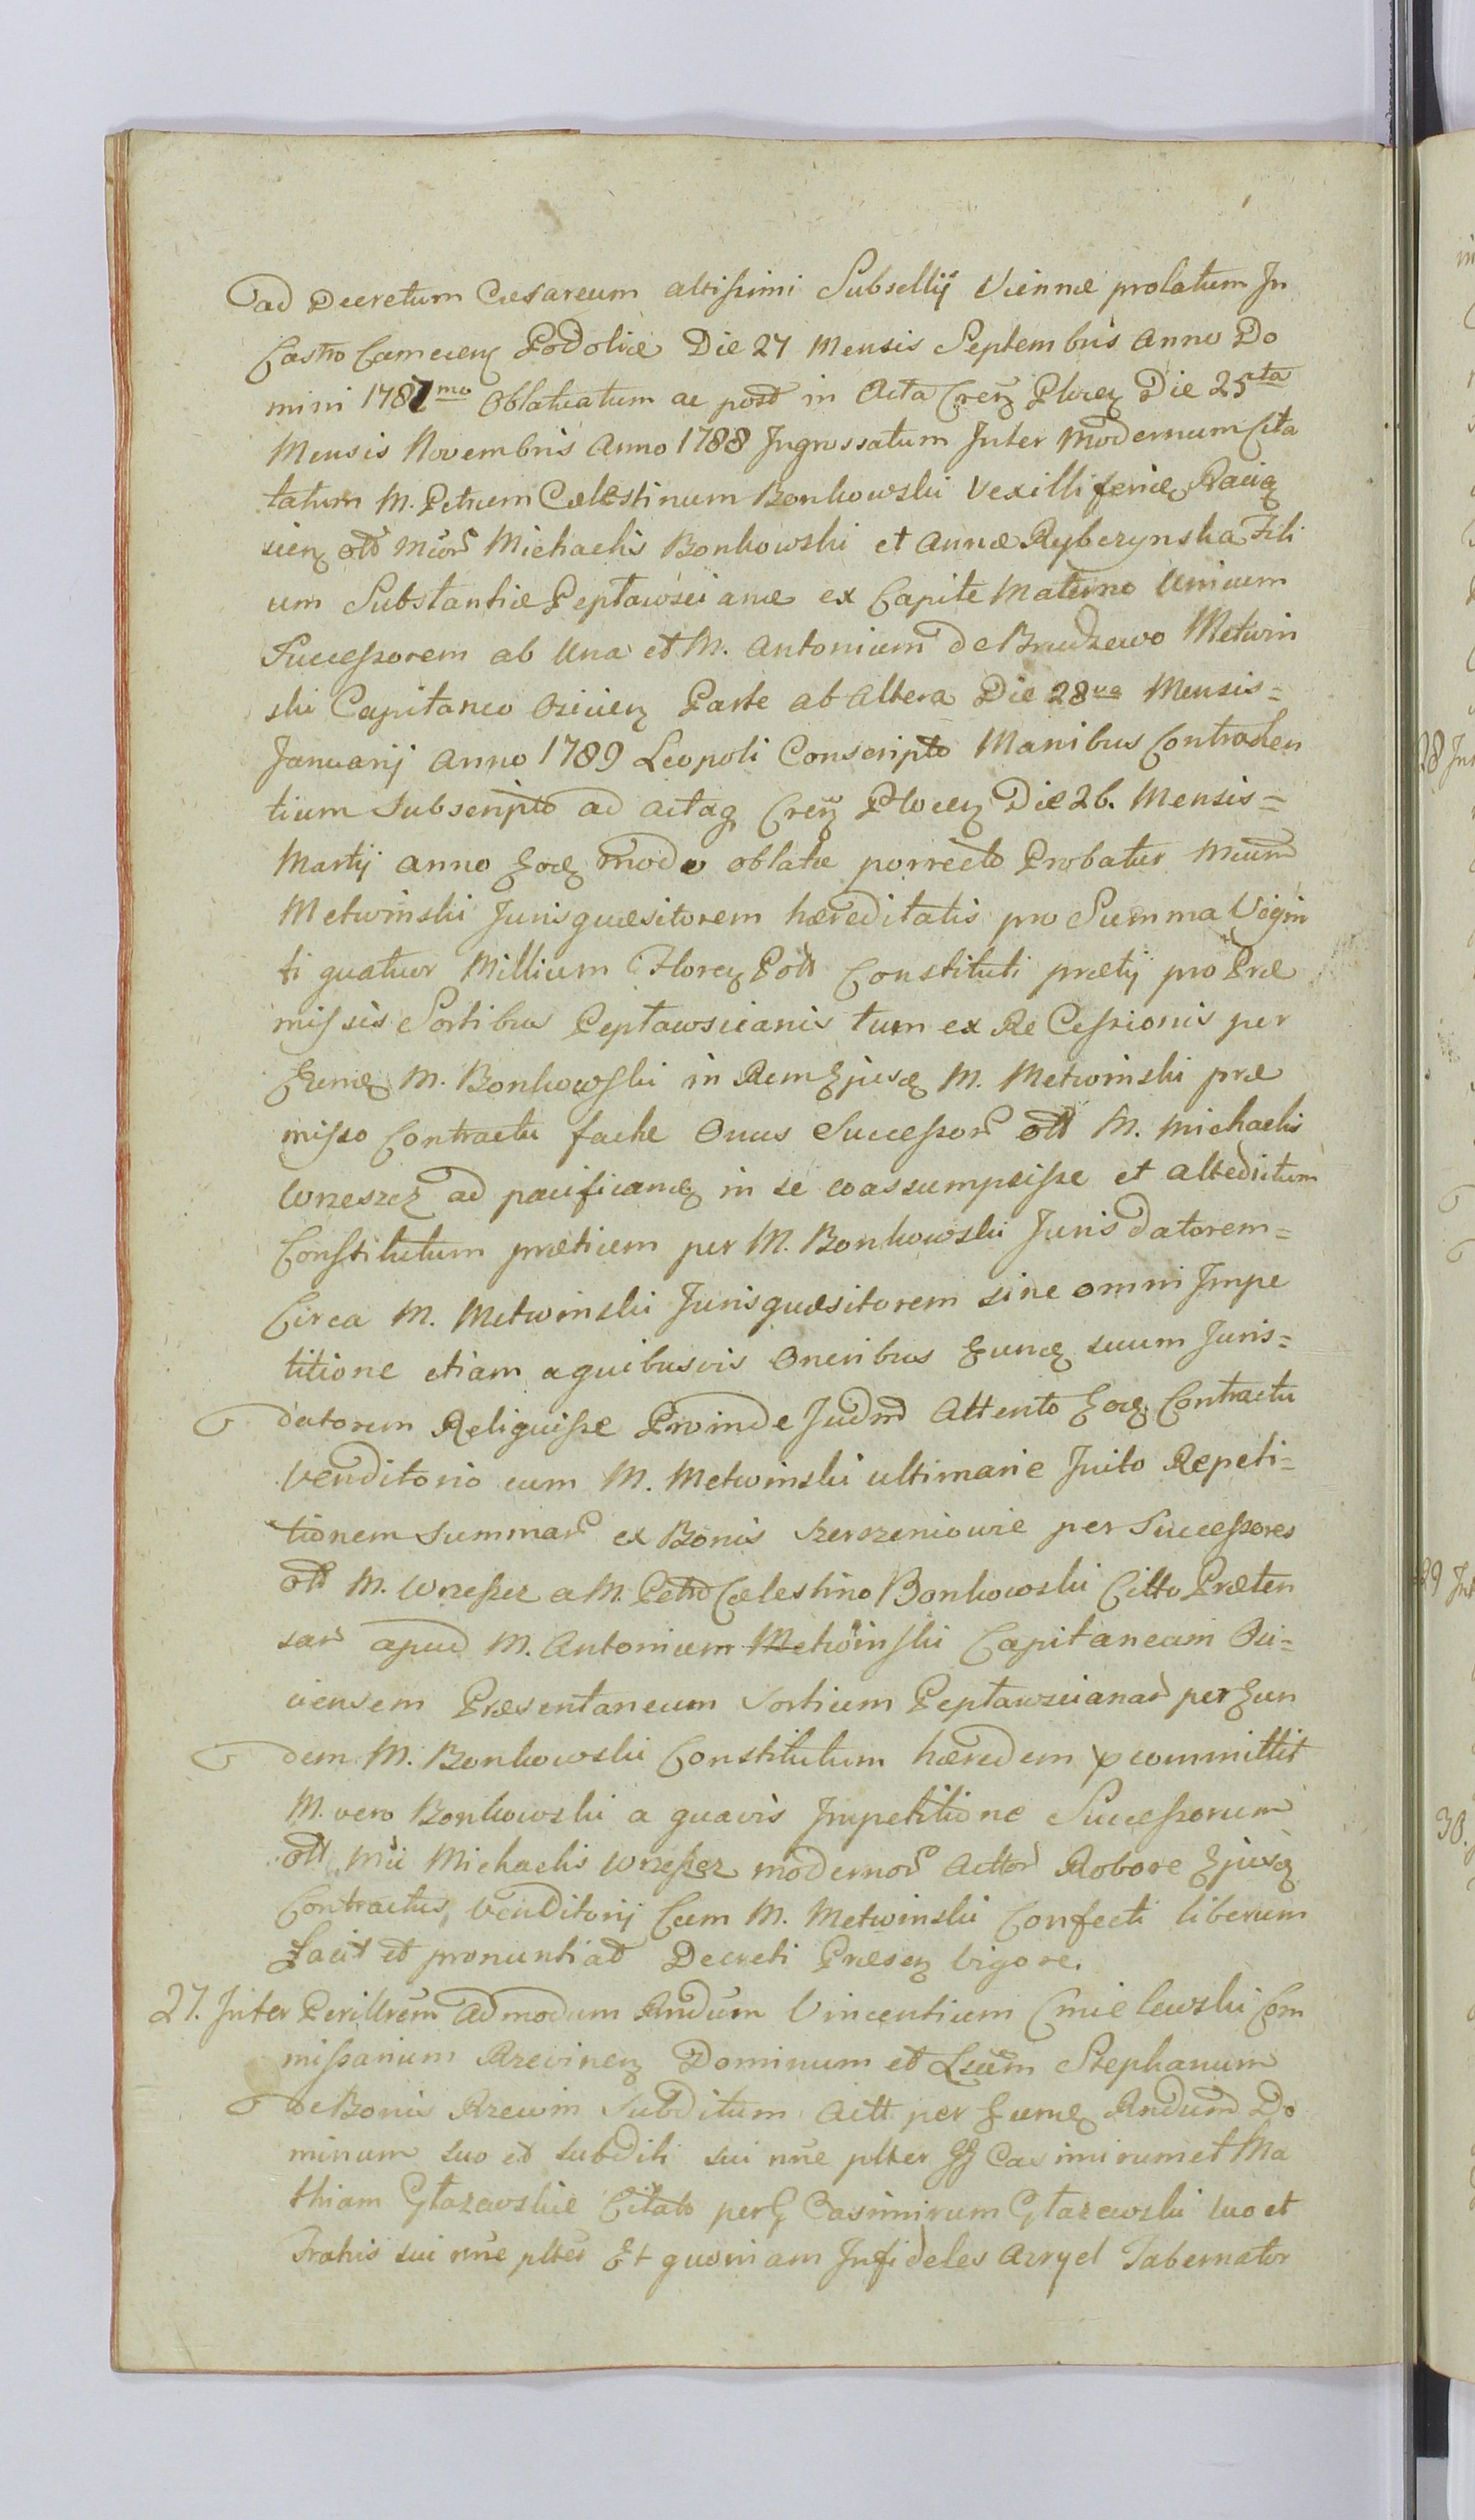 ad Decretum Cæsareum altissimi Subsellij Viennæ prolatum In
Castro Camenen Podoliæ Die 27 Mensis Septembris Anno Do
mini 1787mo Oblatuatum ac post in Acta Cren Plocen Die 25ta
Mensis Novembris Anno 1788 Ingrossatum Inter Modernum Cita
tatum M. Petrum Cælestinum Bonkowski Vexilliferiæ Raciąż
cien olld Mcor Michaelis Bonkowski et Annæ Rybczynska Fili
um Substantiæ Peptawsci anæ ex Capite Materno Unicum
Successorem ab Una et M. Antonium de Brudzewo Metwin
ski Capitaneo Osiecien Parte ab Altera Die 28va Mensis=
Januarij Anno 1789 Leopoli Conscripto Manibus Contrahen
tium Subscripto ad actaq Cren Plocen Die 26. Mensis=
Martij Anno Eodq modo oblatæ porrecto Probatur Mcum
Metwinski Jurisquæsitorem hæreditatis pro Summa Vigin
ti quatuor Millium Floren Poll Constituti prætij pro Præ
missis Sortibus Peptawscianis tum ex Re Cessionis per
Eundq M. Bonkowski in Rem Ejusdq M. Metwinski præ
misso Contractu factæ Onus Successor olld M. Michaelis
Wreszcz ad pacificandq in se coassumpsisse et altedictum
Constitutum prætium per M. Bonkowski Juris datorem=
Circa M. Metwinski Jurisquæsitorem sine omni Impe
titione etiam a quibusvis Oneribus Eundq suum Juris=
datorem Reliquisse Proinde Judm Attento Eodq Contractu
Venditorio cum M. Metwinski ultimarie Inito Repeti=
tionem Summar ex Bonis Szerszeniowie per Successores
olld M. Wreszcz a M. Petro Cælestino Bonkowski Citto Præten
sar apud M. Antonium Metwinski Capitaneum Osi=
ciensem Præsentaneum Sortium Peptawscianar per Eun
dem M. Bonkowski Constitutum hæredem committit
M. vero Bonkowski a quavis Impetitione Successorum
olld Mci Michaelis Wreszcz modernor Actor Robore Ejusdq
Contractus Venditorij Cum M. Metwinski Confecti liberum
Facit et pronuntiat Decreti Præsen Vigore.
27. Inter Perillrem Admodum Rndum Vincentium Cmielewski Com
missarium Rzewinen Dominum et Lsum Stephanum
de Bonis Rzewin Subditum Actt per Eundq Rndum Do
minum suo et subditi sui nne plter GG Casimirum et Ma
thiam Głazewskie Citato per G Casimirum Głazewski suo et
Fratris sui nne plter Et quoniam Infideles Azryel Tabernator